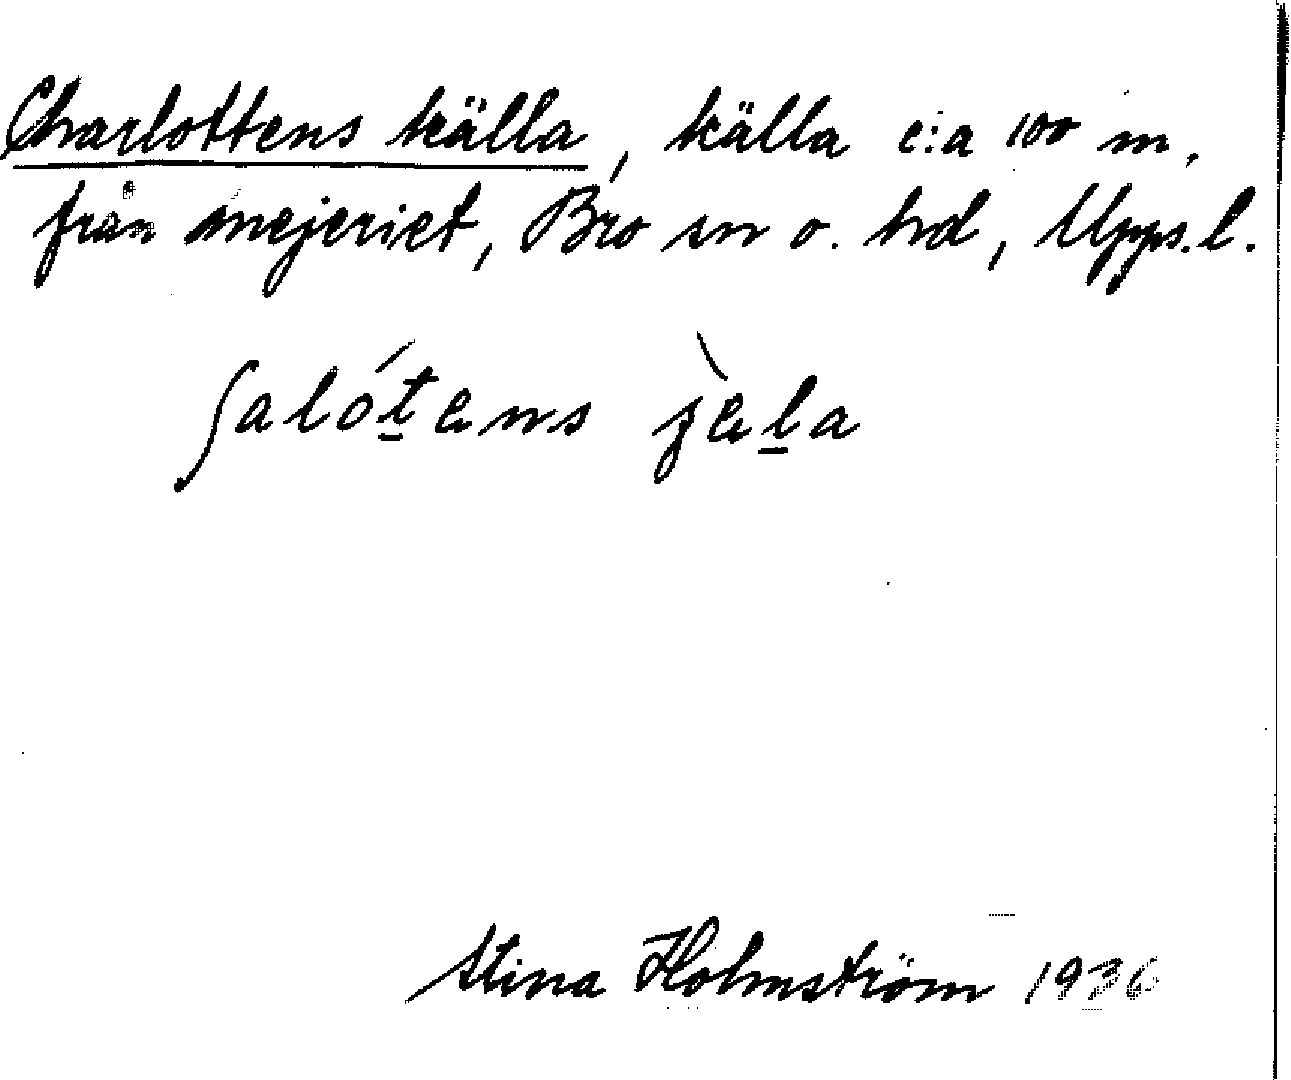 Charlottens källa, källa c:a 100 m.
från mejeriet, Bro sn o. hd, Upps. l.
ʃalótens
Stina Holmström 1936